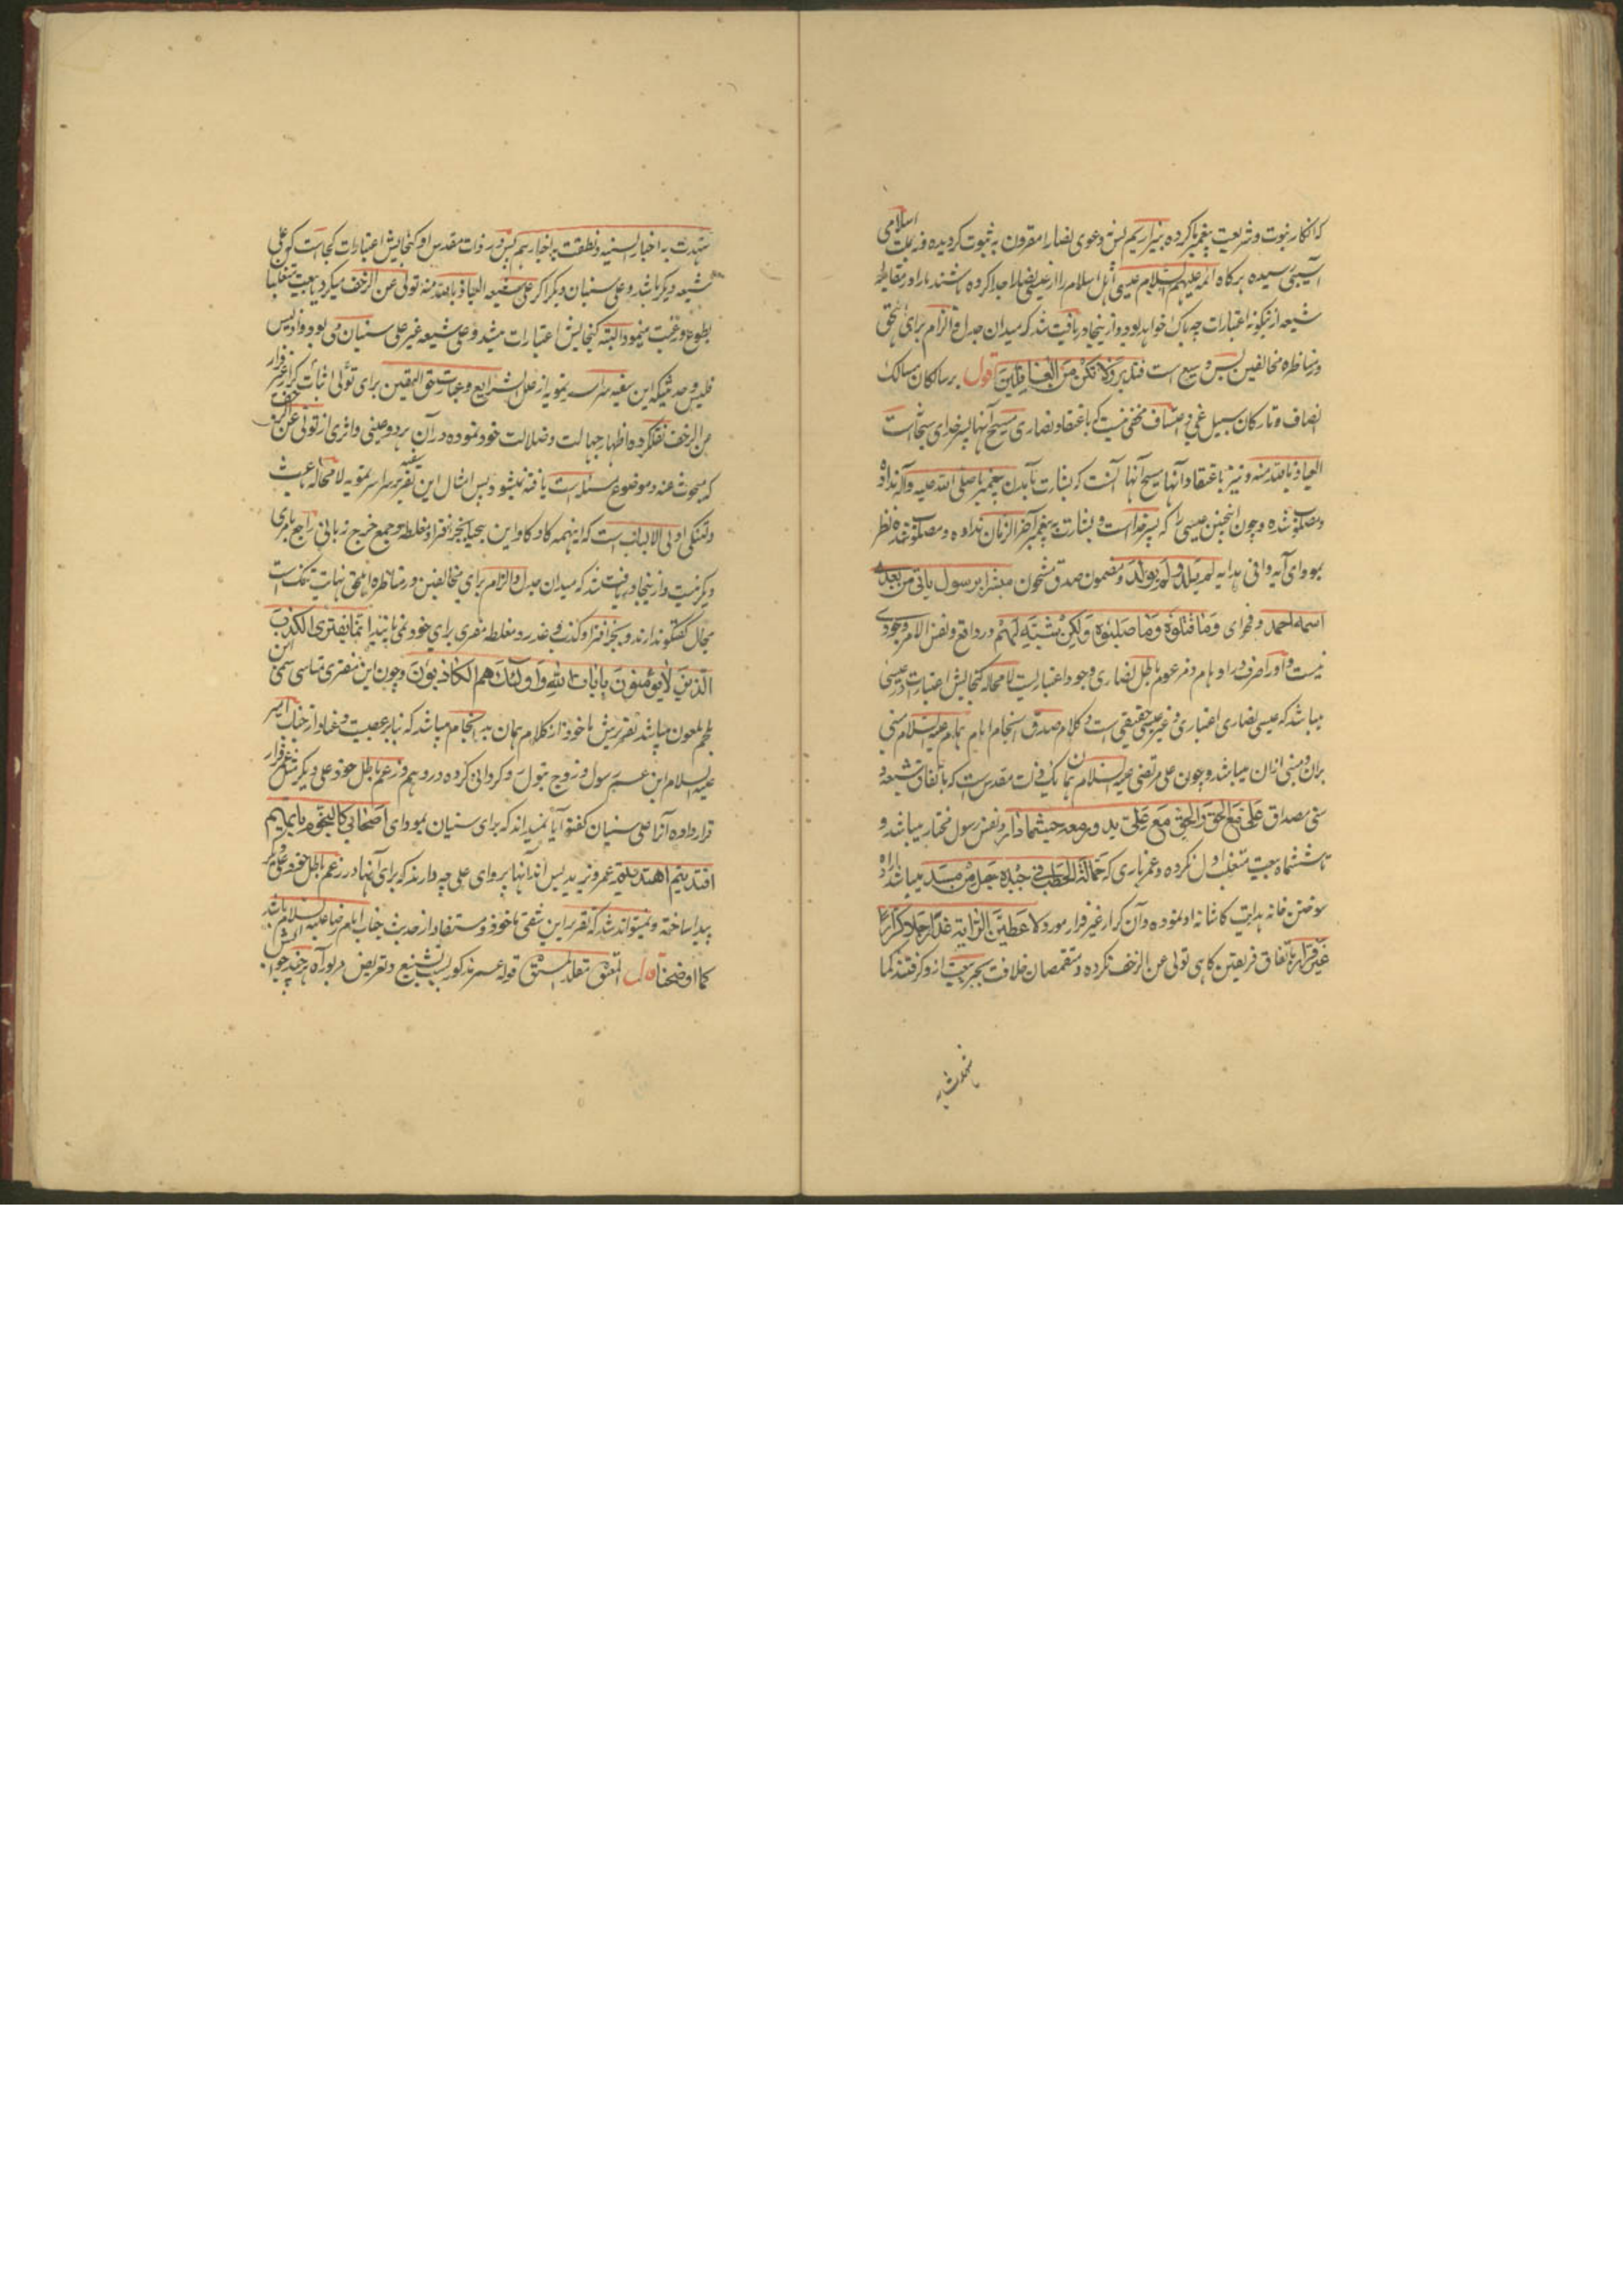 که انکار نبوت و شریعت پیغمبر ما کرده بیزاریم پس دعوی نصارا مقرون به ثبوت گردیده و نه بملت اسلامی
آسیبی رسیده هرگاه ائمه علیهم السلام عیسی اهل اسلام را از عیسی نصارا جدا کرده باشند ما را در مقابله
شیعه ازینگونه اعتبارات چه باک خواهد بود و ازینجا دریافت شد که میدان جدل و الزام برای اهل حق
در مناظره مخالفین بس وسیع است فتدبر ولا تکن من الغافلین اقول بر سالکان مسالک
انصاف و تارکان سبیل غی و اعتساف مخفی نیست که باعتقاد نصاری مسیح آنها پسر خدای سبحانست
العیاذ بالله منه و نیز باعتقاد آنها مسیح آنها آنست که بشارت بآمدن پیغمبر ما صلی الله علیه وآله نداده
و مصلوب شده و چون اینچنین عیسی را که پسر خداست و بشارت به پیغمبر آخر الزمان نداده و مصلوب شده نظر
بمودای آیه وافی هدایه لم یلد ولم یولد و مضمون صدق مشحون مبشرا برسول یاتی من بعدی
اسمه احمد و فحوای وما قتلوه وما صلبوه ولکن شبه لهم در واقع و نفس الامر وجودی
نیست و او را صرف در اوهام و مزعوم باطل نصاری وجود اعتباریست لا محاله گنجایش اعتبارات در عیسی
میباشد که عیسی نصاری اعتباری و غیر عیسی حقیقی است و کلام صدق انجام امام همام علیه السلام مبنی
بران و مبنی ازان میباشد و چون علی مرتضی علیه السلام همان یک ذات مقدس است که باتفاق شیعه و
سنی مصداق علی مع الحق والحق مع علی یدور معه حیثما دار و نفس رسول مختار میباشد و
تا ششماه بیعت متغلب اول نکرده و عمر باری که حمالة الحطب فی جیدها حبل من مسد میباشد اراده
سوختن خانه هدایت کاشانه او نموده و آن کرار غیر فرار مورد لاعطین الرایة غدا رجلا کرارا
غیر فرار باتفاق فریقین گاهی تولی عن الزحف نکرده و متقمصان خلافت بجبر بیعت ازو گرفتند کما
شهدت به اخبار السنیه و نطقت به اخبارهم پس در ذات مقدس او گنجایش اعتبارات کجاست که علی
شیعه دیگر باشد و علی سنیان دیگر اگر علی شیعه العیاذ بالله منه تولی عن الزحف میکرد یا بیعت متغلبا
بطوع و رغبت مینمود البته گنجایش اعتبارات میشد و علی شیعه غیر علی سنیان می بود و اذ لیس
فلیس و حدیثیکه این سفیه سراسر تمویه از علل الشرایع و عبارت حق الیقین برای تولی اثبات کرار غیر فرار
من الزحف نقل کرده اظهار جهالت و ضلالت خود نموده در آن هر دو عینی و اثری از تولی عن الزحف
که مبحوث عنه و موضوع مسئله است یافته نمیشود پس امثال این تقریر سراسر تمویه لا محاله
اولی الالباب است که اینهمه کاوکاو این بیحیا بجز افترا و مغلطه و جمع خرج زبانی راجع بامری
دیگر نیست و ازینجا دریافت شد که میدان جدل و الزام برای مخالفین در مناظره اهل حق نهایت تنگ است
مجال گفتگو ندارند و بجز افترا و کذب و غدر و مغلطه مفری برای خود نمی یابند انما یفتری الکذب
الذین لا یؤمنون بآیات الله واولئک هم الکاذبون و چون این مفتری
ملعون میباشد تقریرش ماخوذ از کلام همان بد انجام میباشد که بنابر عصبیت و عناد از جناب امیر
علیه السلام ابن عم رسول و زوج بتول روگردانی کرده در وهم و زعم باطل خود علی دیگر مثل
قرار داده آنرا علی سنیان گفته آیا نمیداند که برای سنیان بمودای اصحابی کالنجوم بایهم
اقتدیتم اهتدیتم عمر و زید بس اند آنها پروای علی چه دارند که برای آنها در زعم باطل خود علی دیگر
پیدا ساخته و نمیتواند شد که تقریر این شقی ماخوذ و مستفاد از حدیث جناب امام رضا علیه السلام باشد
کما اوضحنا قال المتعنق مقلد المتشدق قوله عمر مذکور بسبب تشنیع و تعریض هر چند جواب